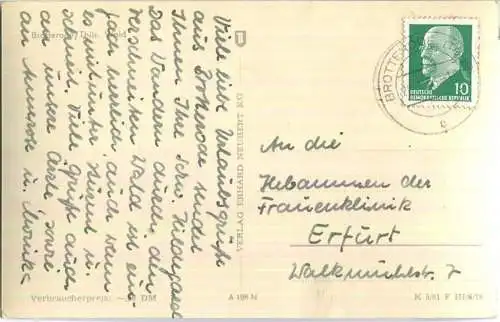 Brotterode/Thür. Wald
Viele liebe Urlaubsgrüße
aus Brotterode sendet
Ihnen Ihre Schw. Hildegard
Das Wandern durch den
verschneiten Wald ist ein-
fach herrlich, auch wenn
es mitunter stürmt u.
schneit. Viele Grüße auch
an unsere Ärzte, sowie
an Annerose u. Monika
VERLAG ERHARD NEUBERT KG
DEUTSCHE
DEMOKRATISCHE REPUBLIK
10
BROTTERODE
c
An die
Hebammen der
Frauenklinik
Erfurt
Walkmühlstr. 7
Verbraucherpreis: DM
A 198 M
K 5/61 F III/8/18